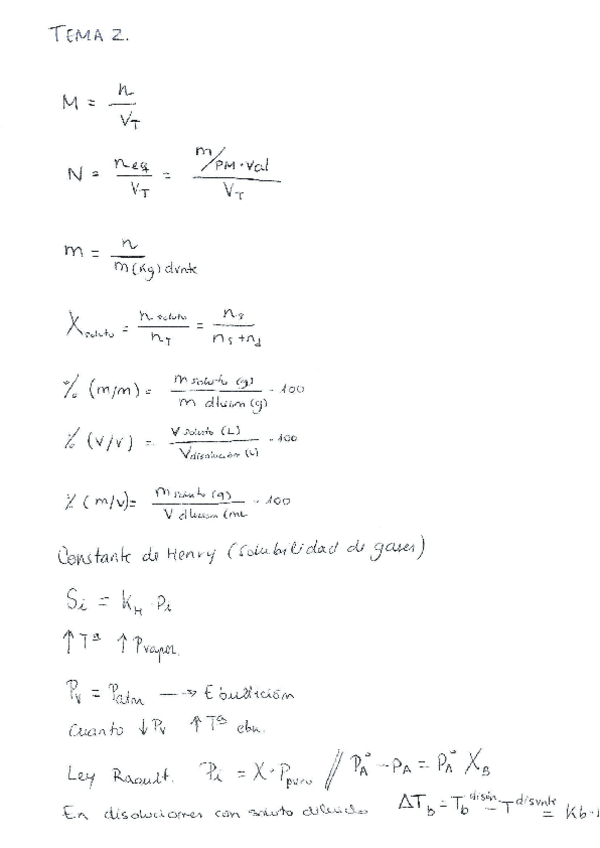 TEMA 2.
M = n / V_T
N = neq / V_T = m/PM·Val / V_T
m = n / m(kg) dvnte
X soluto = n soluto / n_T = n_s / n_s+n_d
% (m/m) = m soluto (g) / m dlsion (g) · 100
% (v/v) = V soluto (L) / V disolución (L) · 100
% (m/v) = m soluto (g) / V (mL · 100
Constante de Henry (solubilidad de gases)
Si = K_H · Pi
↑Tª ↑Pvapor.
P_v = Patm → Ebullición
Cuanto ↓P_v ↑Tª ebu.
Ley Raoult. Pi = X · P puro // P_A° - P_A = P_A° X_B
En disoluciones con soluto diluido ΔT_b = T_b disón - T disvnte = Kb ·